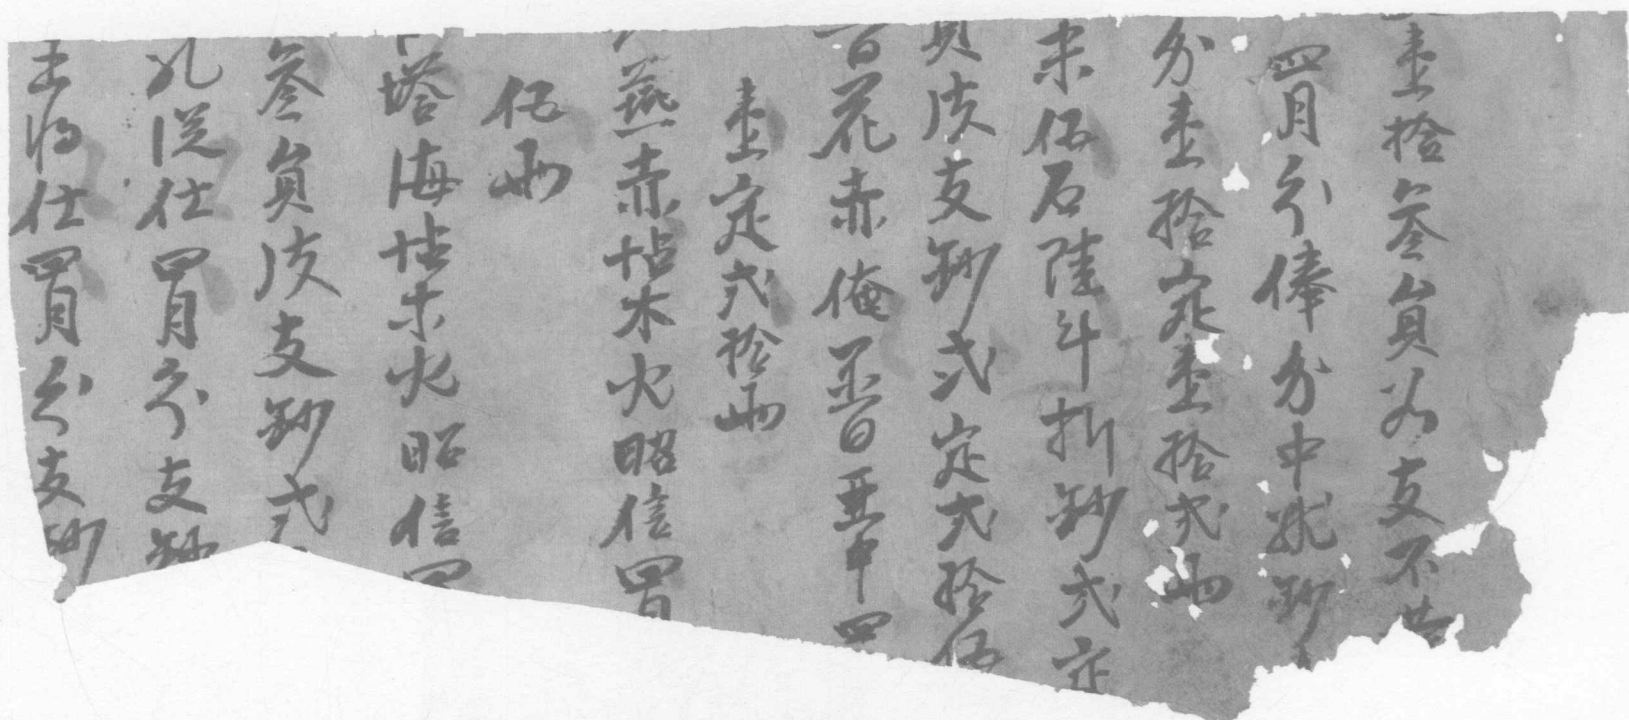 壹拾叁員必支不曾
四月分俸分中統鈔
分壹拾定壹拾弍両
米伍石陸斗折鈔弍定
員決支鈔弍定弍拾伍
百花赤俺普亜中四
壹定弍拾両
燕赤帖木火昭信四月
伍両
塔海帖木火昭信四
叁員決支鈔弍
孔従仕四月分支鈔
王将仕四月分支鈔